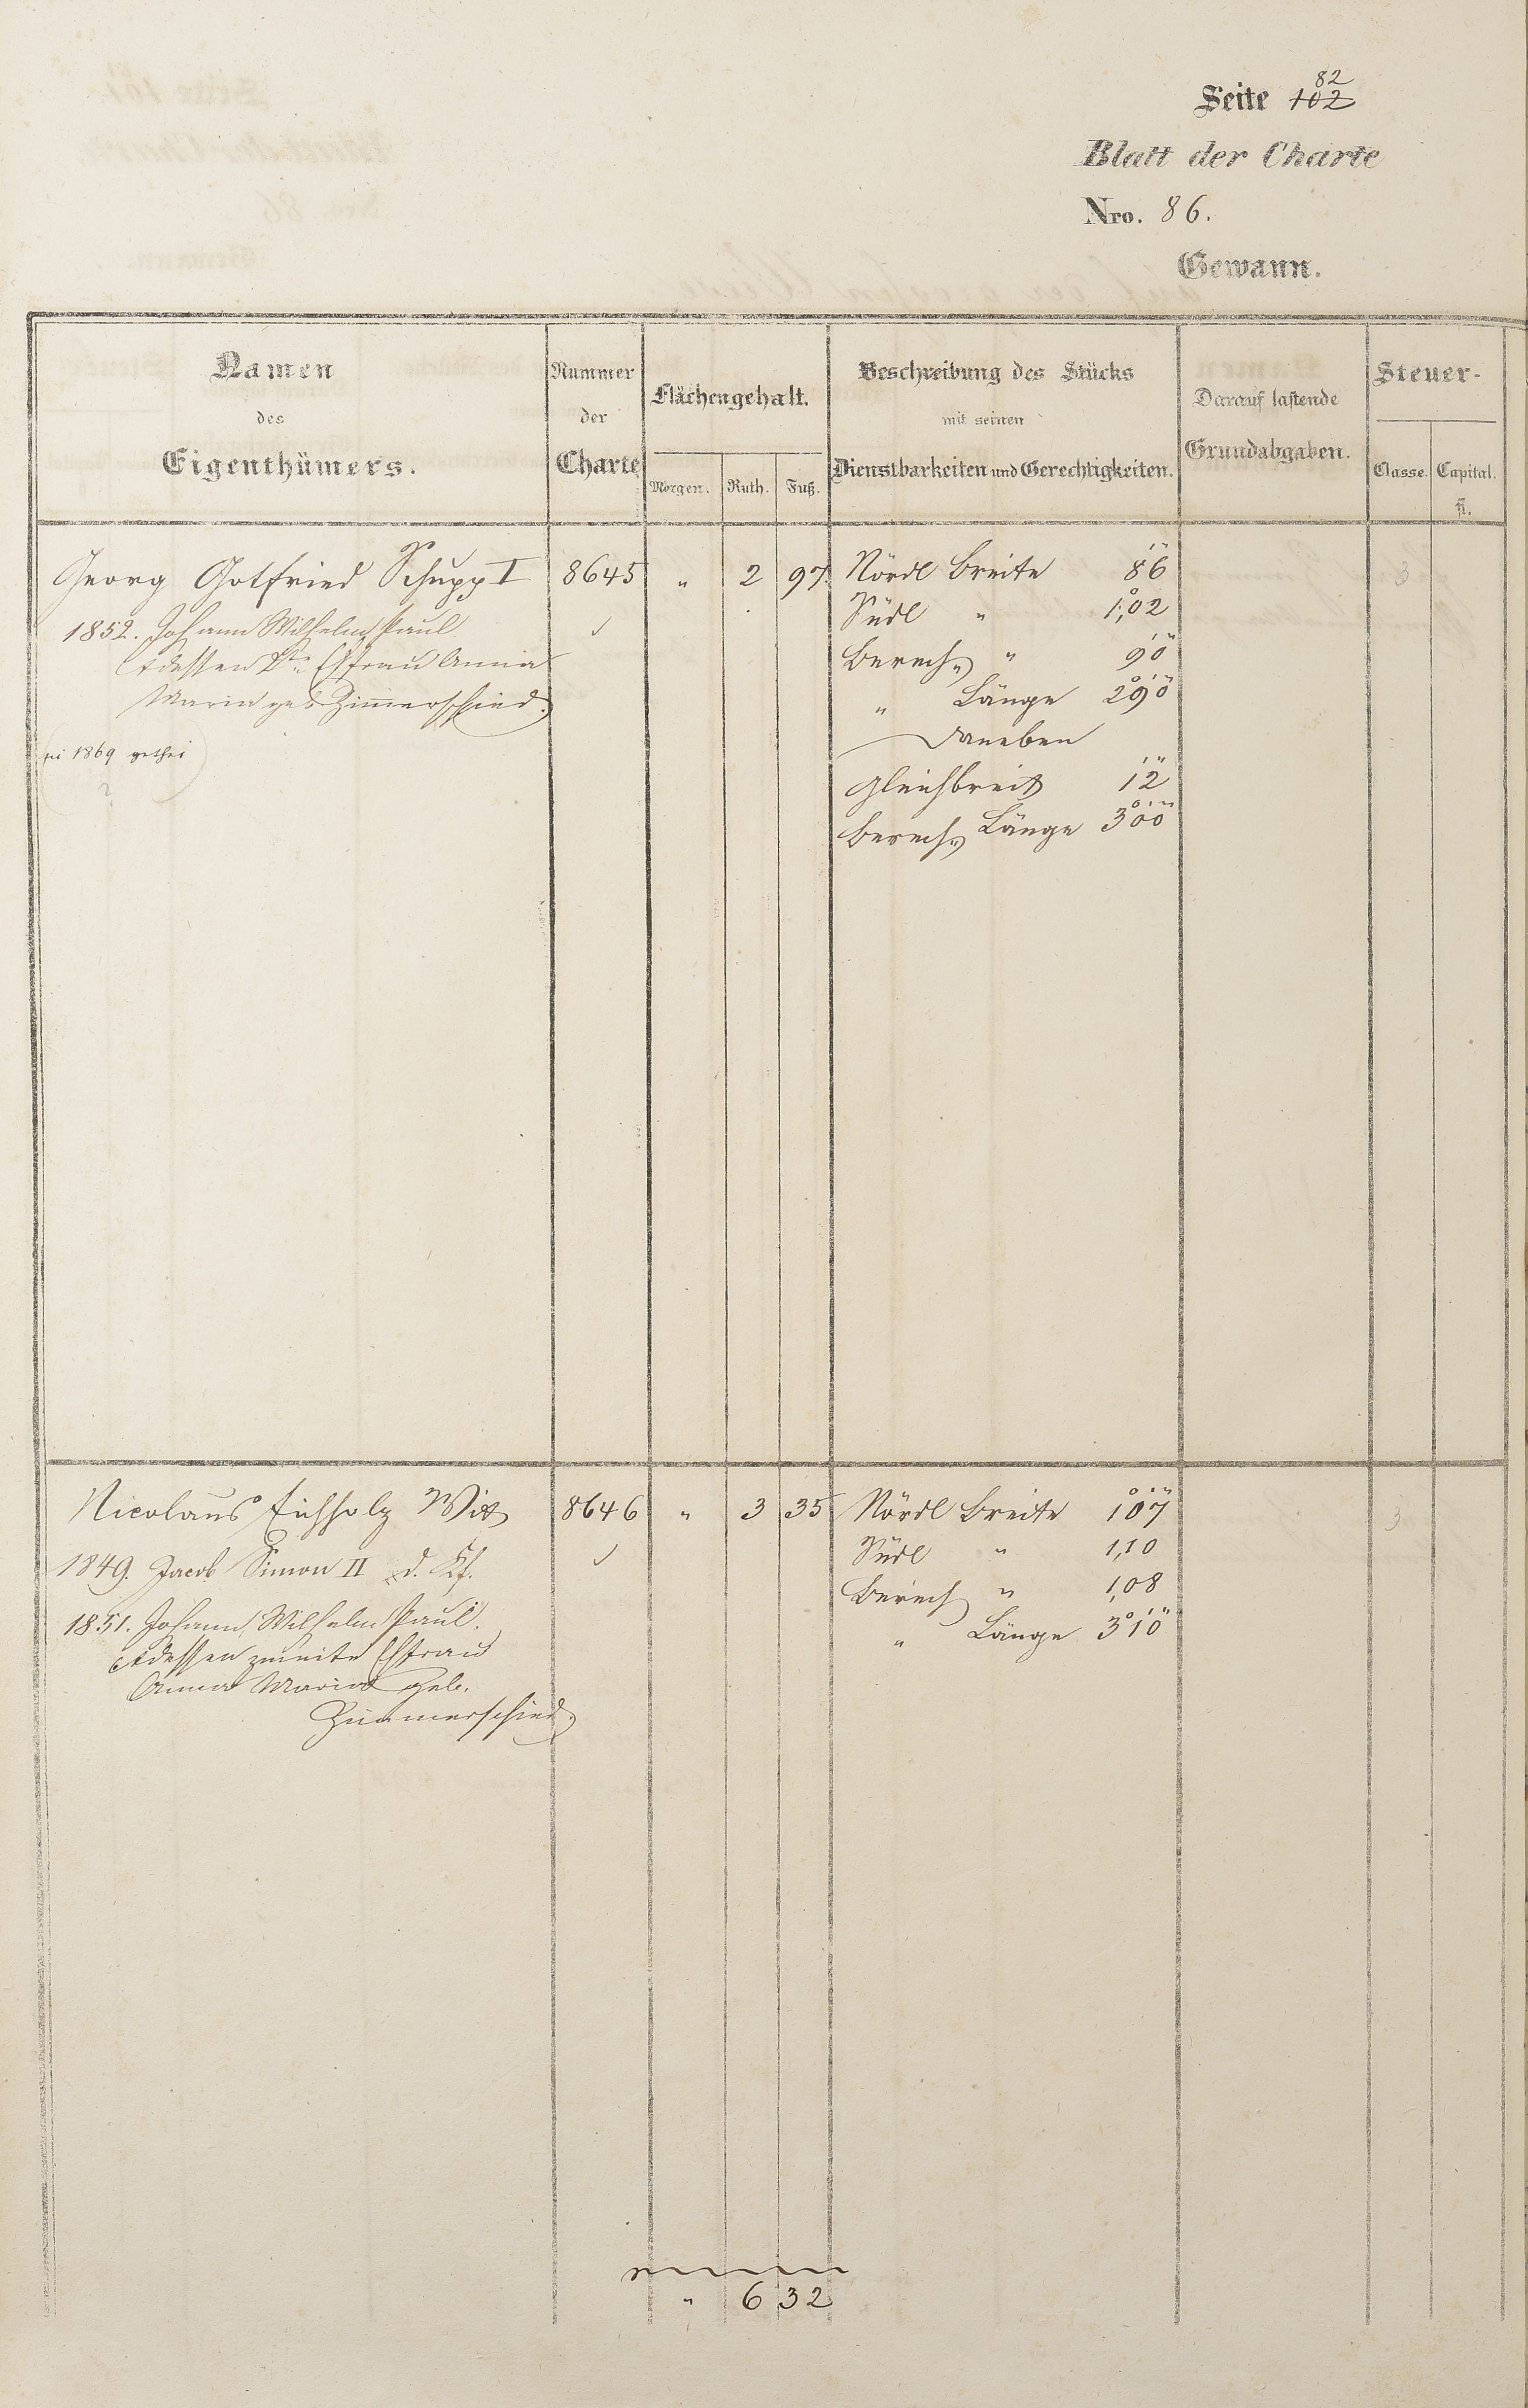 82
Seite 102
Blatt der Charte
Nro. 86.
Gewann.
Namen
des
Eigenthümers.
Nummer
der
Charte
Flächengehalt.
Morgen. Ruth. Fuß.
Beschreibung des Stücks
mit seinen
Dienstbarkeiten und Gerechtigkeiten.
Darauf lastende
Grundabgaben.
Steuer-
Classe. Capital.
fl.
Georg Gotfried Schupp I 8645 " 2 97 Nördl Breite 86 3
1852. Johann Wilhelm Paul ✓ Südl " 1,02
dessen 2te Ehfrau Anna Berech " 90
Maria geb Zimmerschied. " Länge 290
1869 Daneben
Gleichbreit 12
Berech Länge 300
Nicolaus Eichholz Wit 8646 " 3 35 Nördl Breite 107 3
1849. Jacob Simon II d. Kf. ✓ Südl " 1,10
Berech " 1,08
1851. Johann Wilhelm Paul. " Länge 310
dessen zweite Ehfrau
Anna Maria geb.
Zimmerschied.
" 6 32